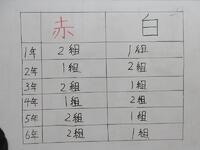 赤 白
1年 2組 1組
2年 1組 2組
3年 2組 1組
4年 1組 2組
5年 2組 1組
6年 2組 1組